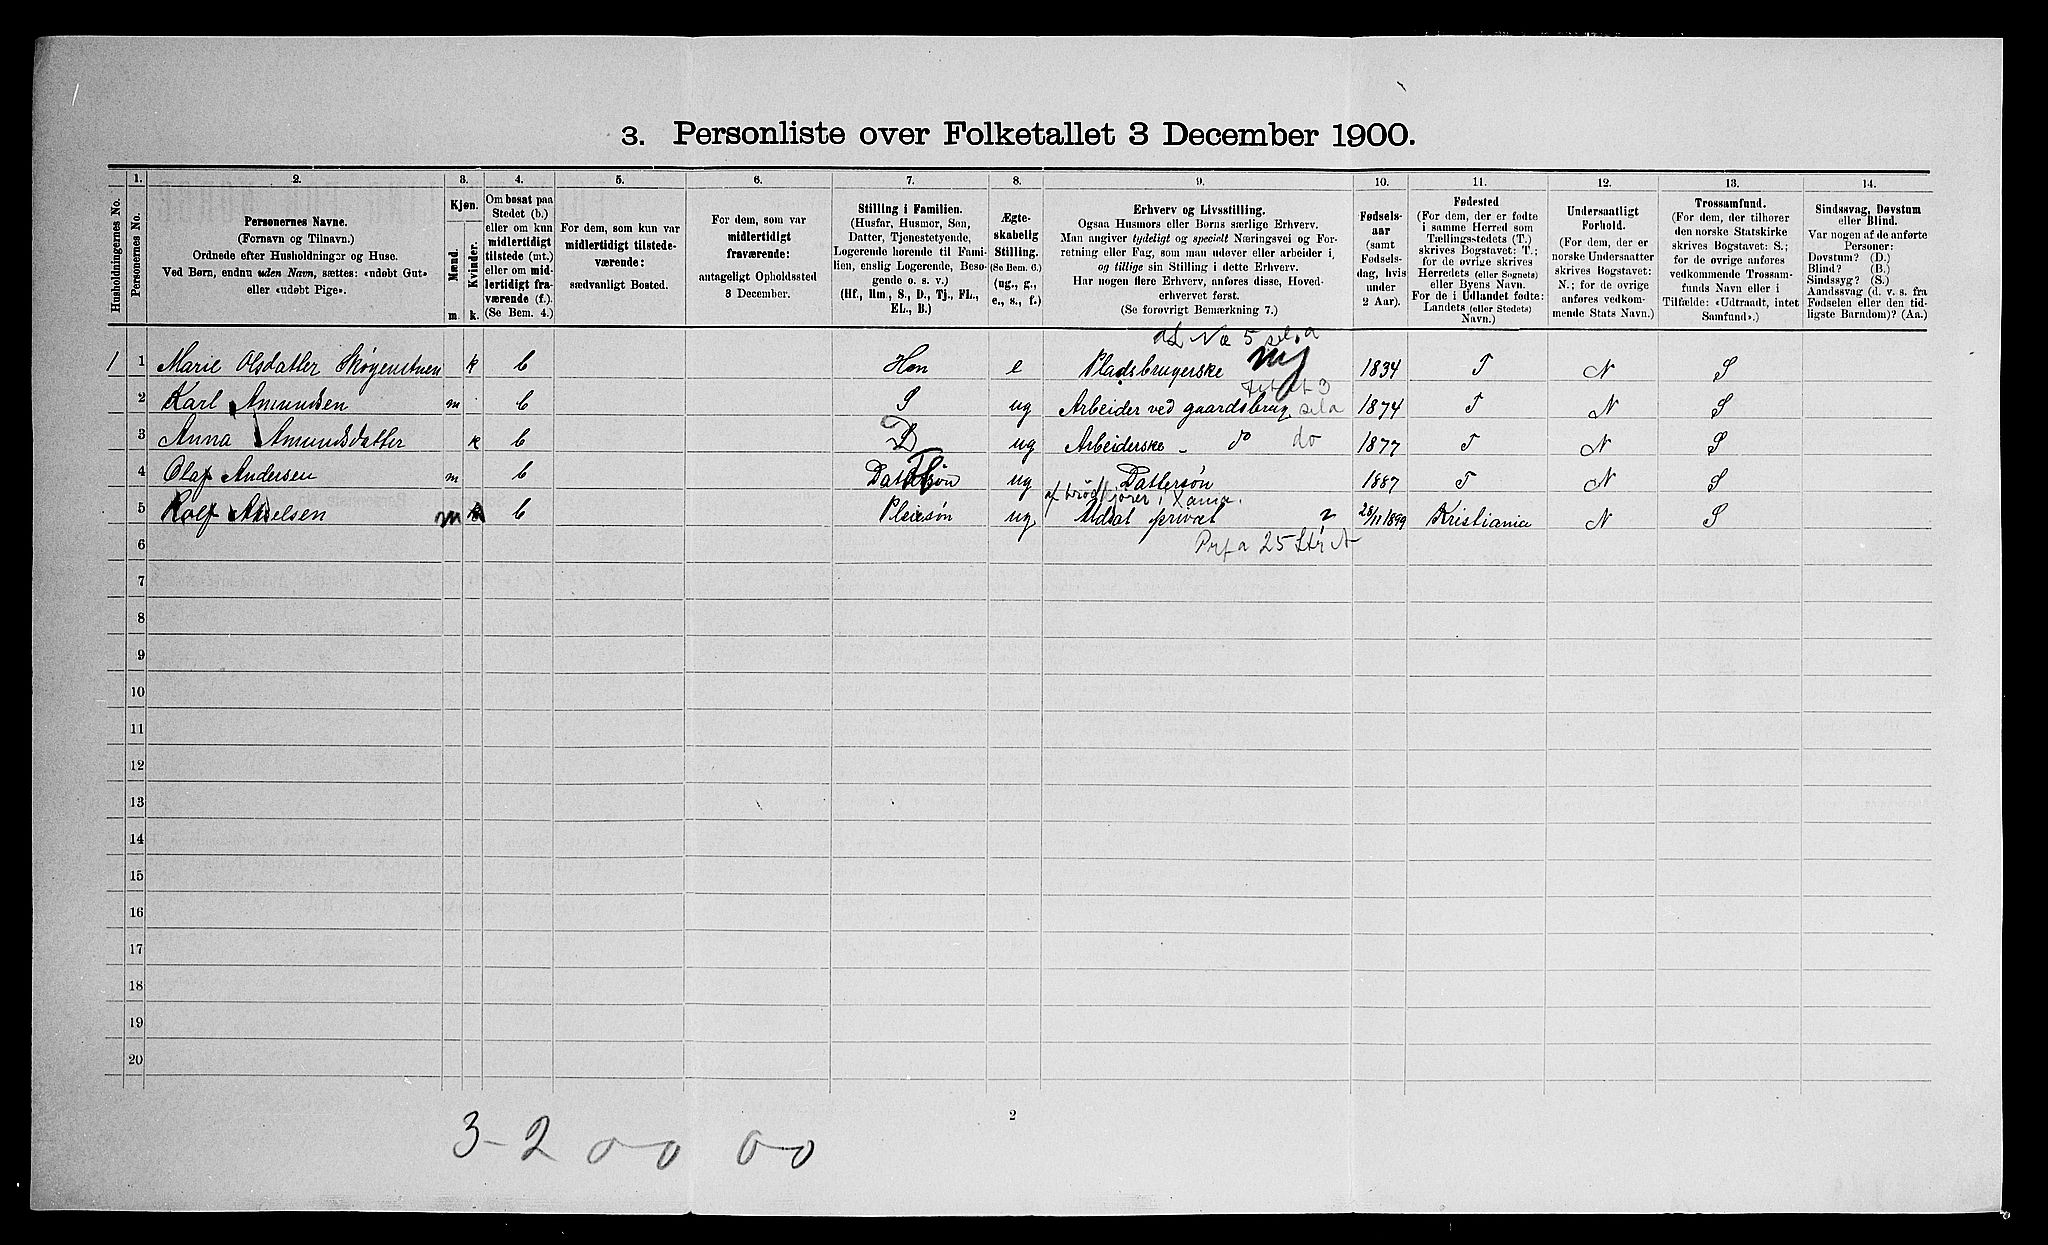 3. Personliste over Folketallet 3 December 1900.
Husholdningernes No.
1.
Personernes No.
2.
Personernes Navne.
(Fornavn og Tilnavn.)
Ordnede efter Husholdninger og Huse.
Ved Børn, endnu uden Navn, sættes: «udøbt Gut»
eller «udøbt Pige».
3.
Kjøn.
Mænd.
Kvinder.
m.
k.
4.
Om bosat paa
Stedet (b.)
eller om kun
midlertidigt
tilstede (mt.)
eller om mid-
lertidigt fra-
værende (f.).
(Se Bem. 4.)
5.
For dem, som kun var
midlertidigt tilstede-
værende:
sædvanligt Bosted.
6.
For dem, som var
midlertidigt
fraværende:
antageligt Opholdssted
3 December.
7.
Stilling i Familien.
(Husfar, Husmor, Søn,
Datter, Tjenestetyende,
Logerende hørende til Fami-
lien, enslig Logerende, Besø-
gende o. s. v.)
(Hf., Hm., S., D., Tj., FL.,
EL., B.)
8.
Ægte-
skabelig
Stilling.
(Se Bem. 6.)
(ug., g.,
e., s., f.)
9.
Erhverv og Livsstilling.
Ogsaa Husmors eller Børns særlige Erhverv.
Man angiver tydeligt og specielt Næringsvei og For-
retning eller Fag, som man udøver eller arbeider i,
og tillige sin Stilling i dette Erhverv.
Har nogen flere Erhverv, anføres disse, Hoved-
erhvervet først.
(Se forøvrigt Bemærkning 7.)
10.
Fødsels-
aar
(samt
Fødsels-
dag, hvis
under
2 Aar).
11.
Fødested
(For dem, der er fødte
i samme Herred som
Tællingsstedets (T.)
skrives Bogstavet: T.;
for de øvrige skrives
Herredets (eller Sognets)
eller Byens Navn.
For de i Udlandet fødte:
Landets (eller Stedets)
Navn.)
12.
Undersaatligt
Forhold.
(For dem, der er
norske Undersaatter
skrives Bogstavet:
N.; for de øvrige
anføres vedkom-
mende Stats Navn.)
13.
Trossamfund.
(For dem, der tilhører
den norske Statskirke
skrives Bogstavet: S.;
for de øvrige anføres
vedkommende Trossam-
funds Navn eller i
Tilfælde: «Udtraadt, intet
Samfund».)
14.
Sindssvag, Døvstum
eller Blind.
Var nogen af de anførte
Personer:
Døvstum? (D.)
Blind? (B.)
Sindssyg? (S.)
Aandssvag (d. v. s. fra
Fødselen eller den tid-
ligste Barndom)? (Aa.)
1 1 Marie Olsdatter Skøyenstuen k b Hm e Pladsbrugerske 1834 T N S
2 Karl Amundsen m b S ug Arbeider ved gaardsbrug 1874 T N S
3 Anna Amundsdatter k b D ug Arbeiderske - do do 1877 T N S
4 Olaf Andersen m b Dattersøn ug Dattersøn 1887 T N S
5 Rolf m b Pleiesøn ug Udsat privat 2 28/11 1899 Kristiania N S
6
7
8
9
10
11
12
13
14
15
16
17
18
19
20
2
3-2 0-0 0-0